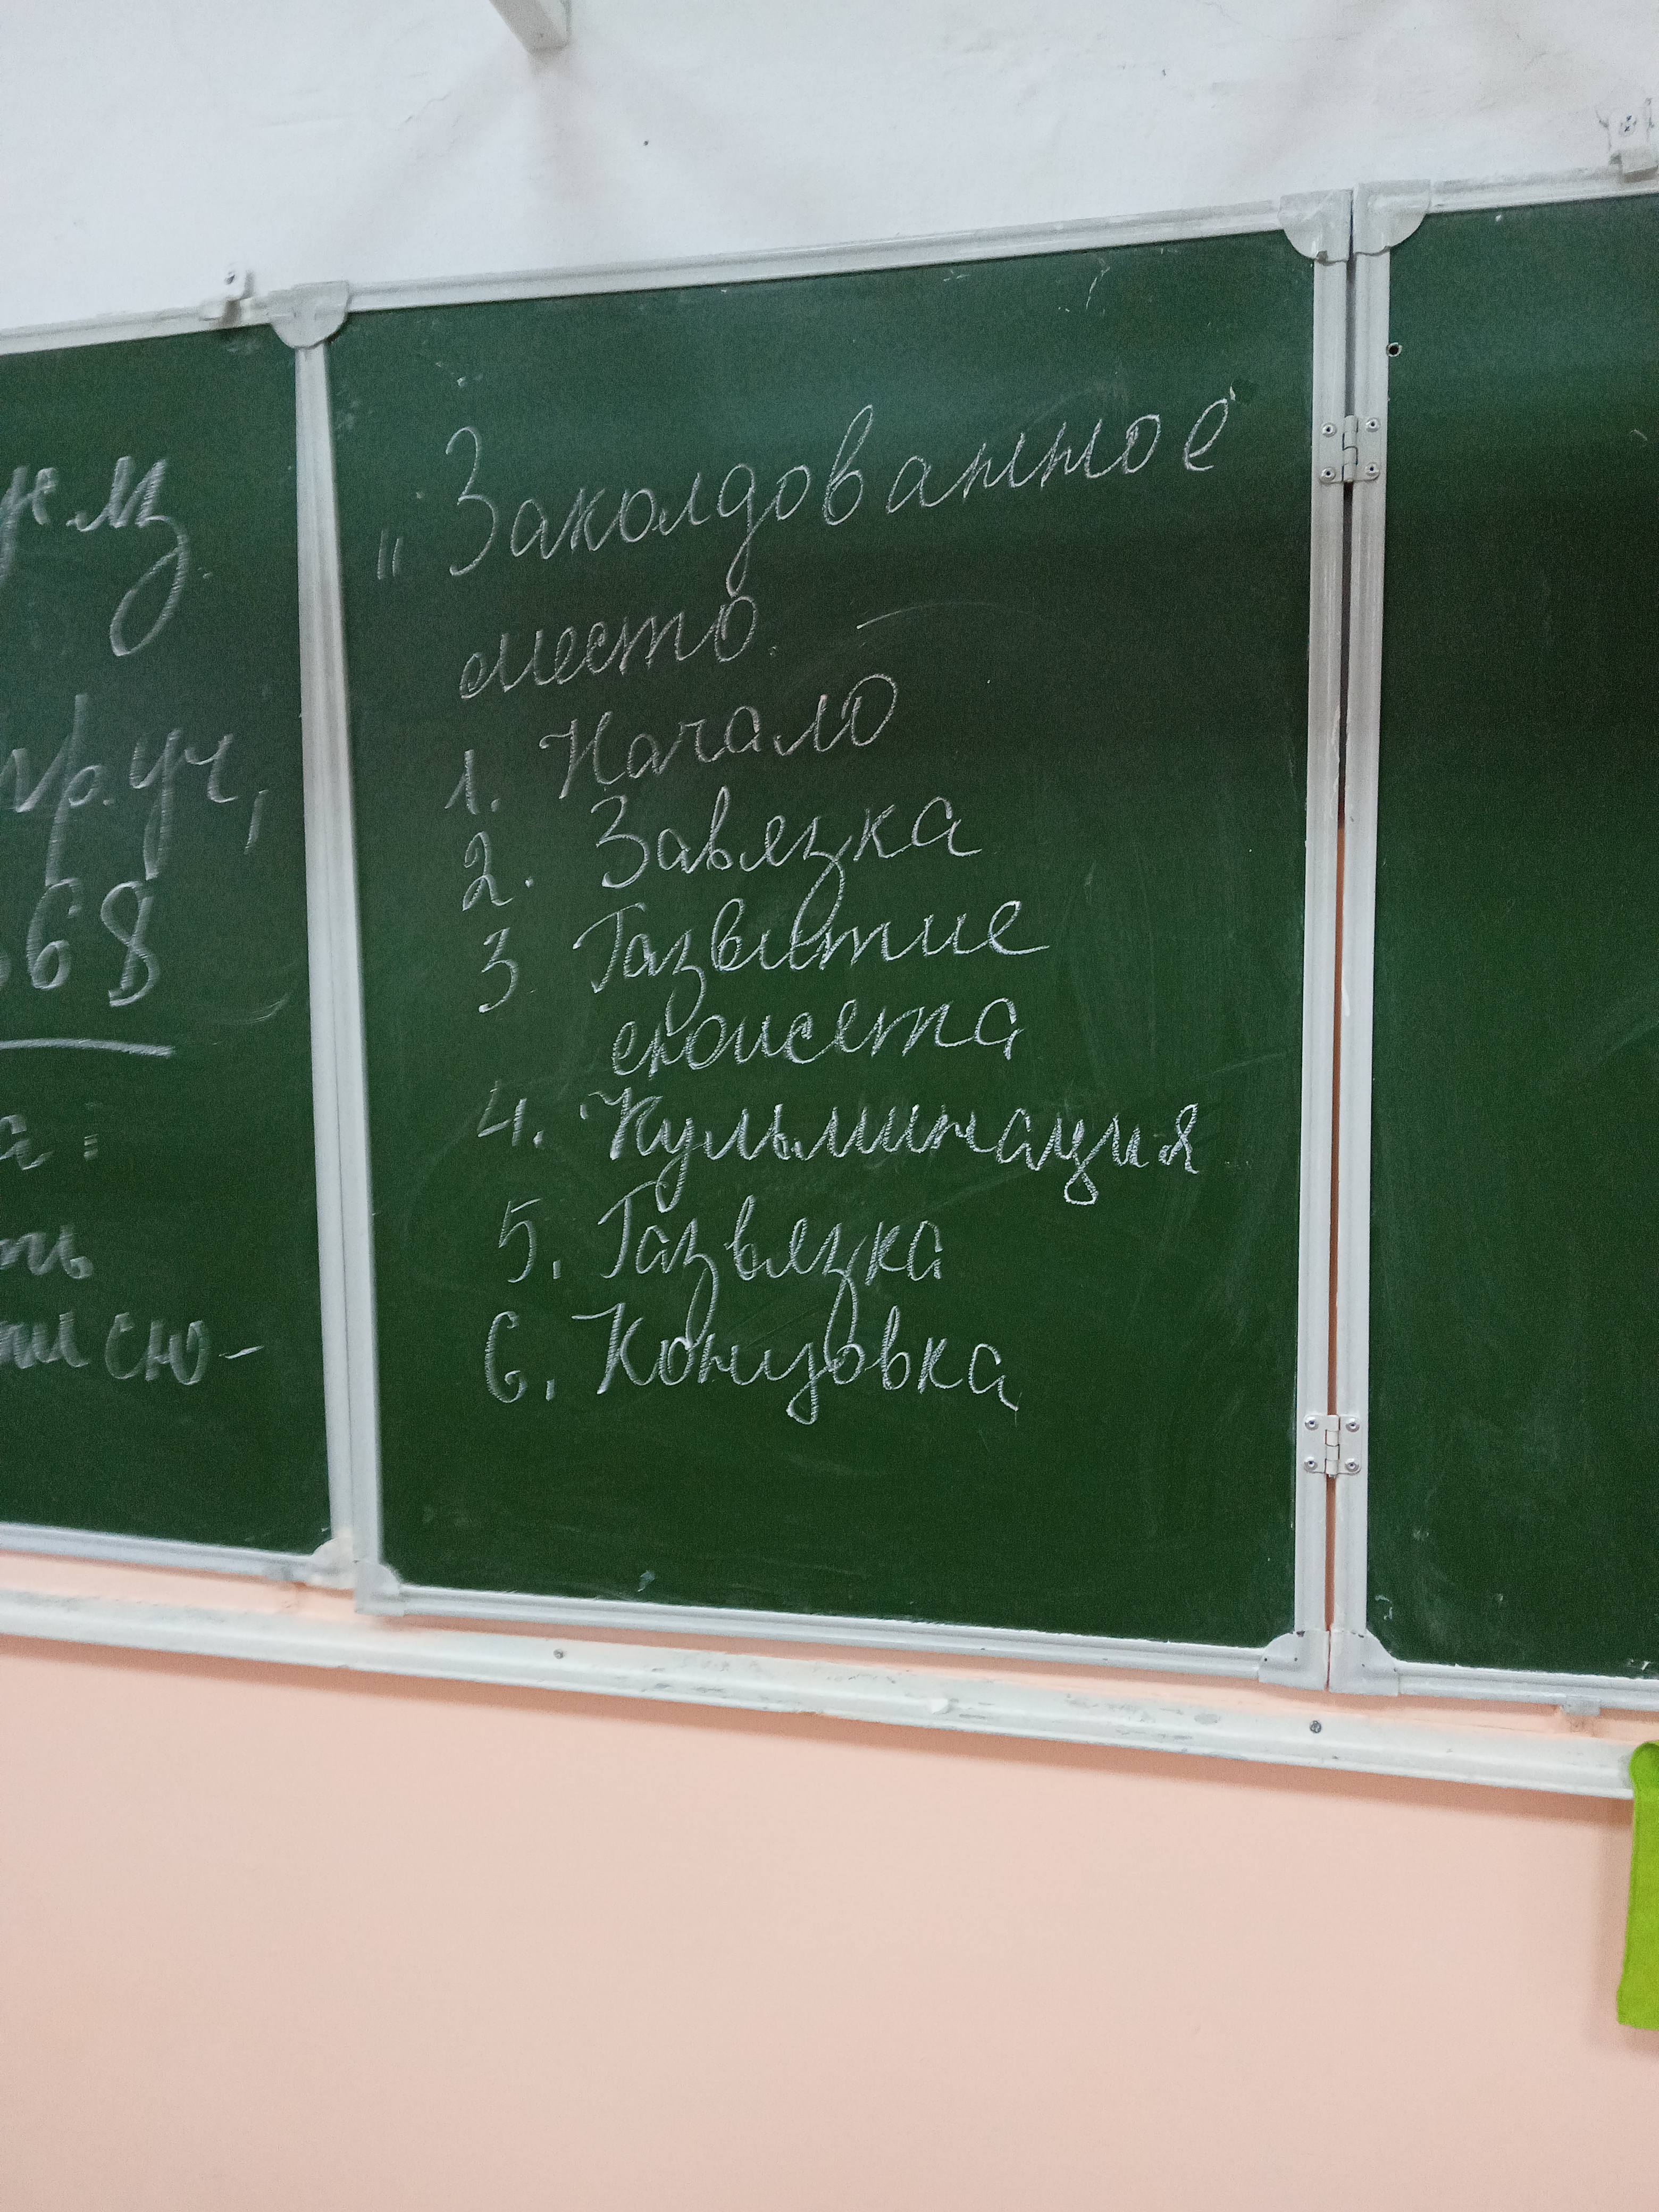 стр. уч,
68
„Заколдованное"
место
1. Начало
2. Завязка
3 Развитие
сюжета
4. Кульминация
5. Развязка
6. Концовка